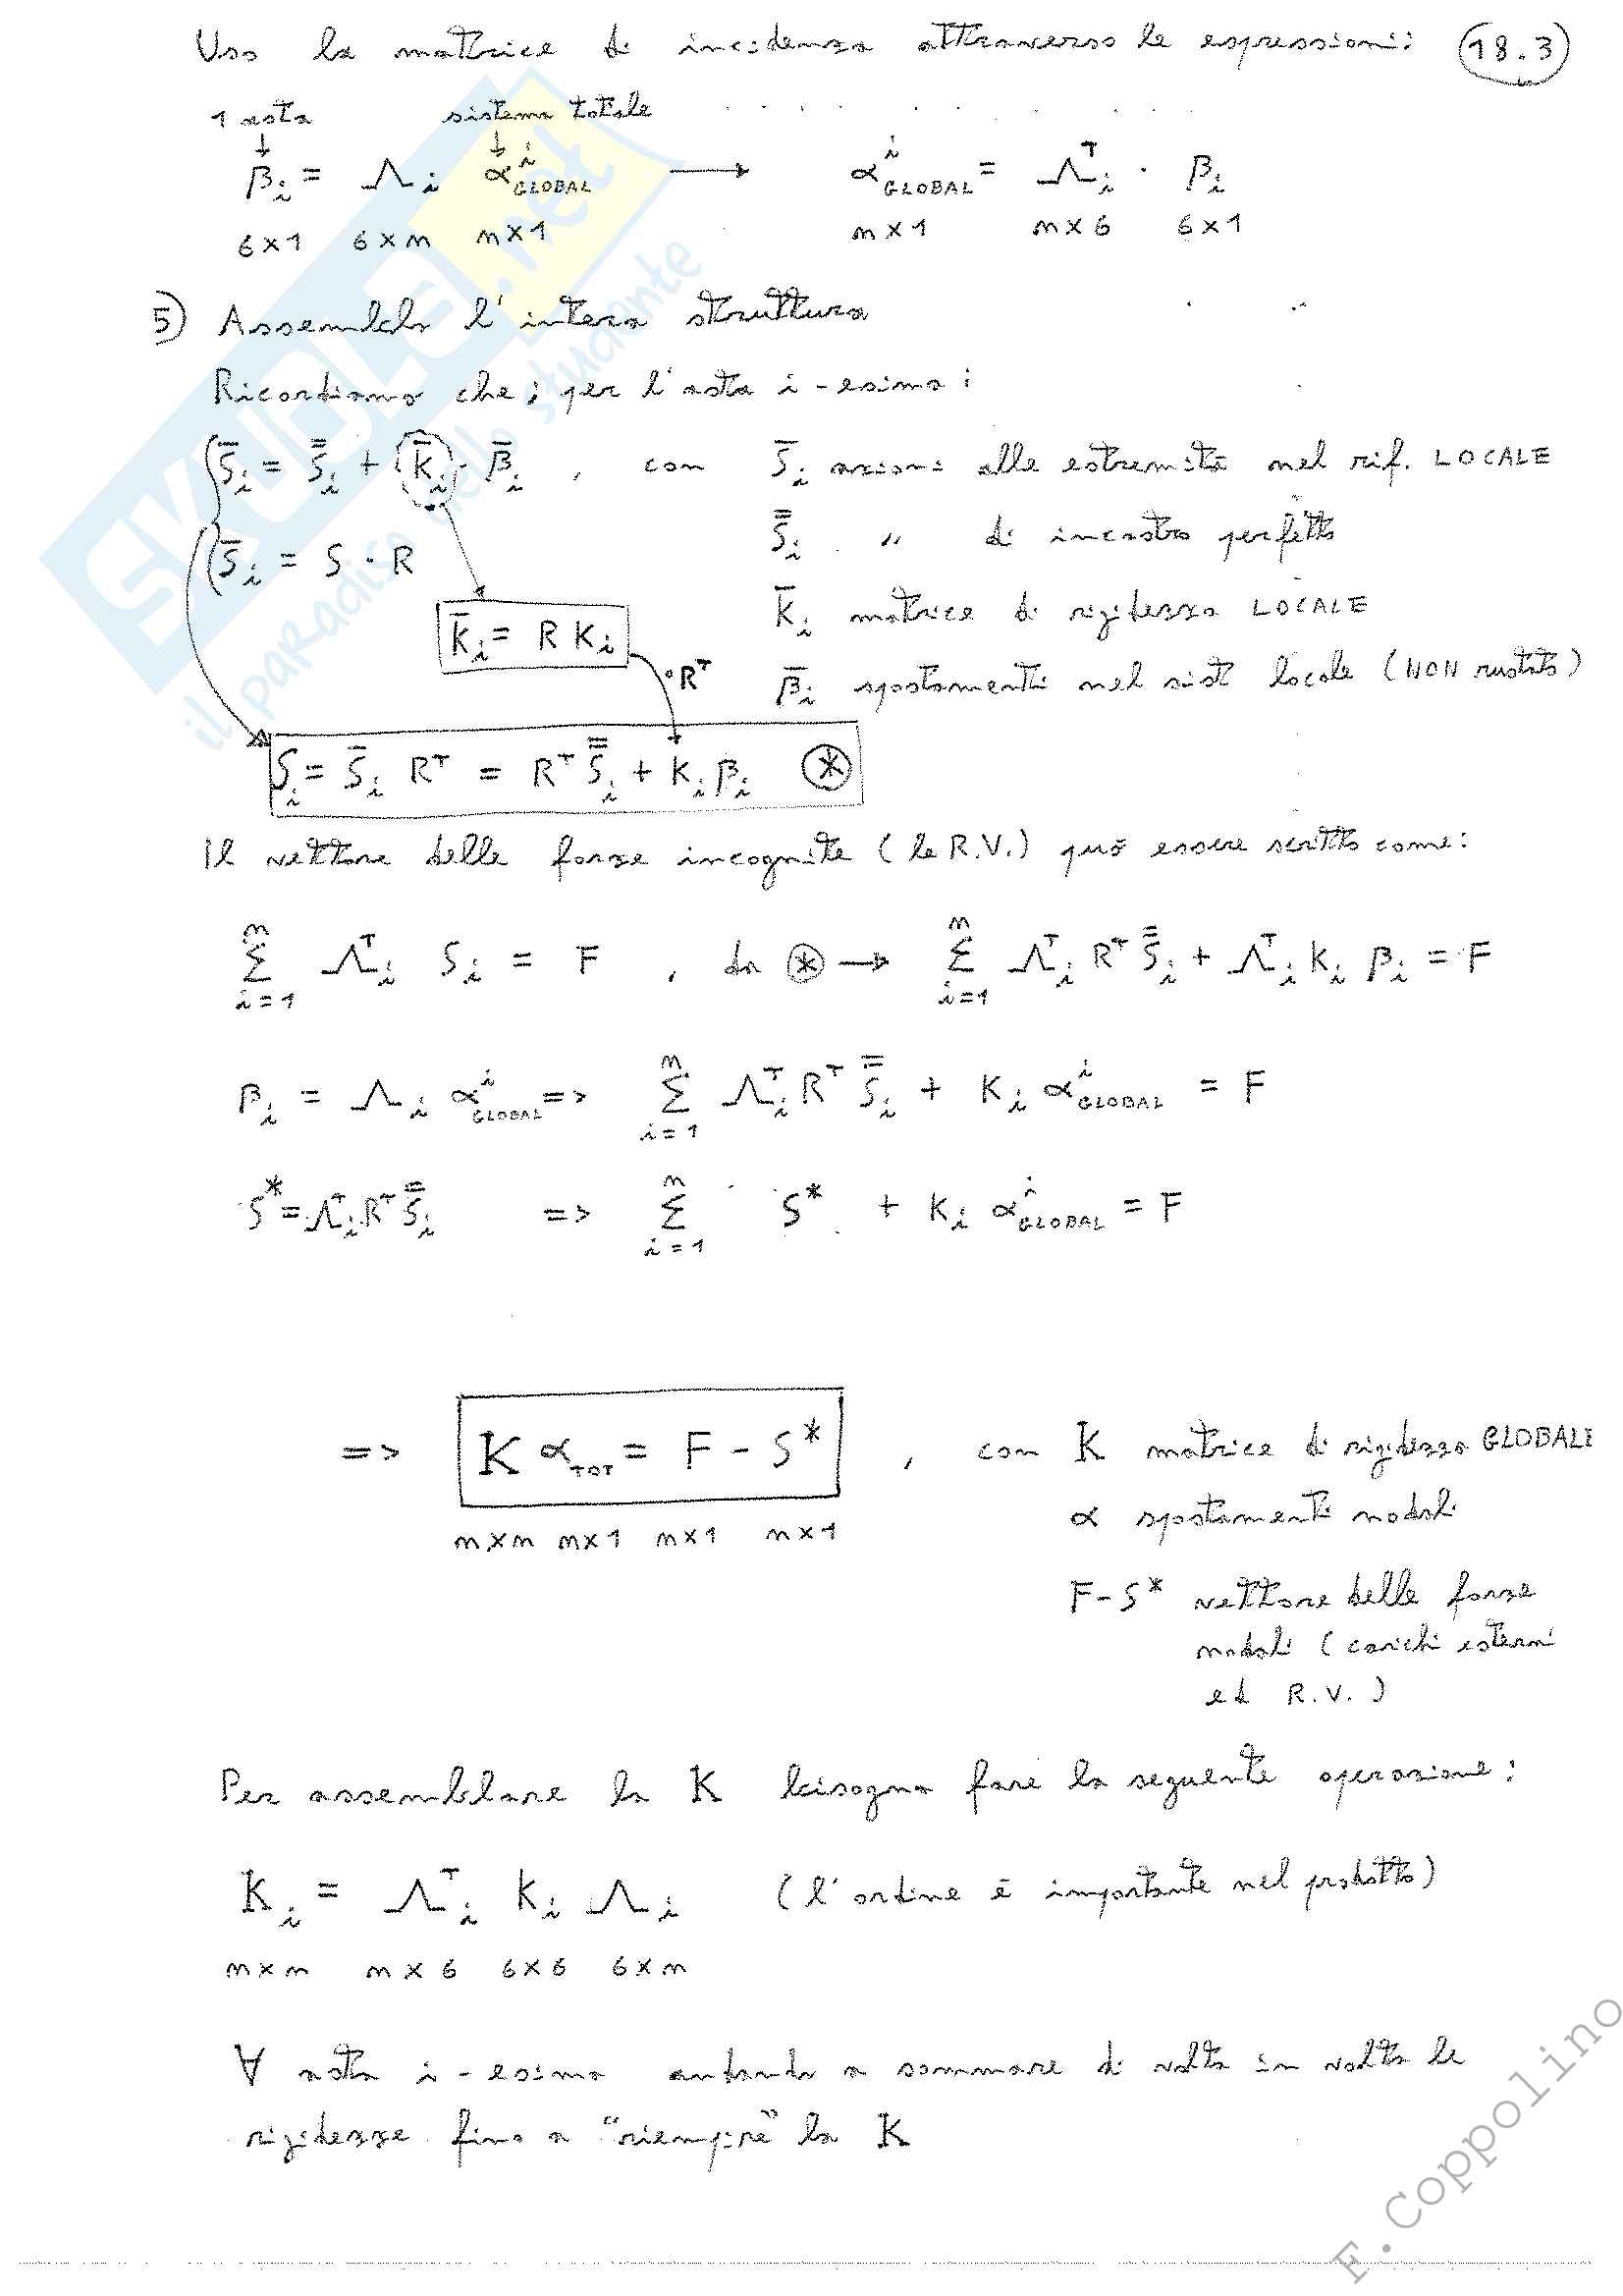 Uso la matrice di incidenza attraverso le espressioni: 18.3
1 asta sistema totale
↓ ↓
βi = Λi α^i GLOBAL → α^i GLOBAL = Λ^T i · βi
6×1 6×n n×1 n×1 n×6 6×1
5) Assemblo l'intera struttura
Ricordiamo che, per l'asta i-esima:
S̄i = S̿i + k̄i · β̄i , con S̄i azioni alle estremità nel rif. LOCALE
S̿i " di incastro perfetto
S̄i = S · R
k̄i matrice di rigidezza LOCALE
k̄i = R Ki
· R^T
β̄i spostamenti nel sist locale (NON ruotato)
Si = S̄i R^T = R^T S̿i + Ki βi ⊛
Il vettore delle forze incognite (le R.V.) può essere scritto come:
Σ(i=1, m) Λ^T i Si = F , da ⊛ → Σ(i=1, m) Λ^T i R^T S̿i + Λ^T i Ki βi = F
βi = Λi α^i GLOBAL => Σ(i=1, m) Λ^T i R^T S̿i + Ki α^i GLOBAL = F
S* = Λ^T i R^T S̿i => Σ(i=1, m) S* + Ki α^i GLOBAL = F
=> K α TOT = F - S* , con K matrice di rigidezza GLOBALE
n×n n×1 n×1 n×1
α spostamenti nodali
F - S* vettore delle forze
nodali (carichi esterni
ed R.V.)
Per assemblare la K bisogna fare la seguente operazione:
Ki = Λ^T i Ki Λi (l'ordine è importante nel prodotto)
n×n n×6 6×6 6×n
∀ asta i-esima andando a sommare di volta in volta le
rigidezze fino a "riempire" la K
SKUOLA.net
il paradiso dello studente
F. Coppolino